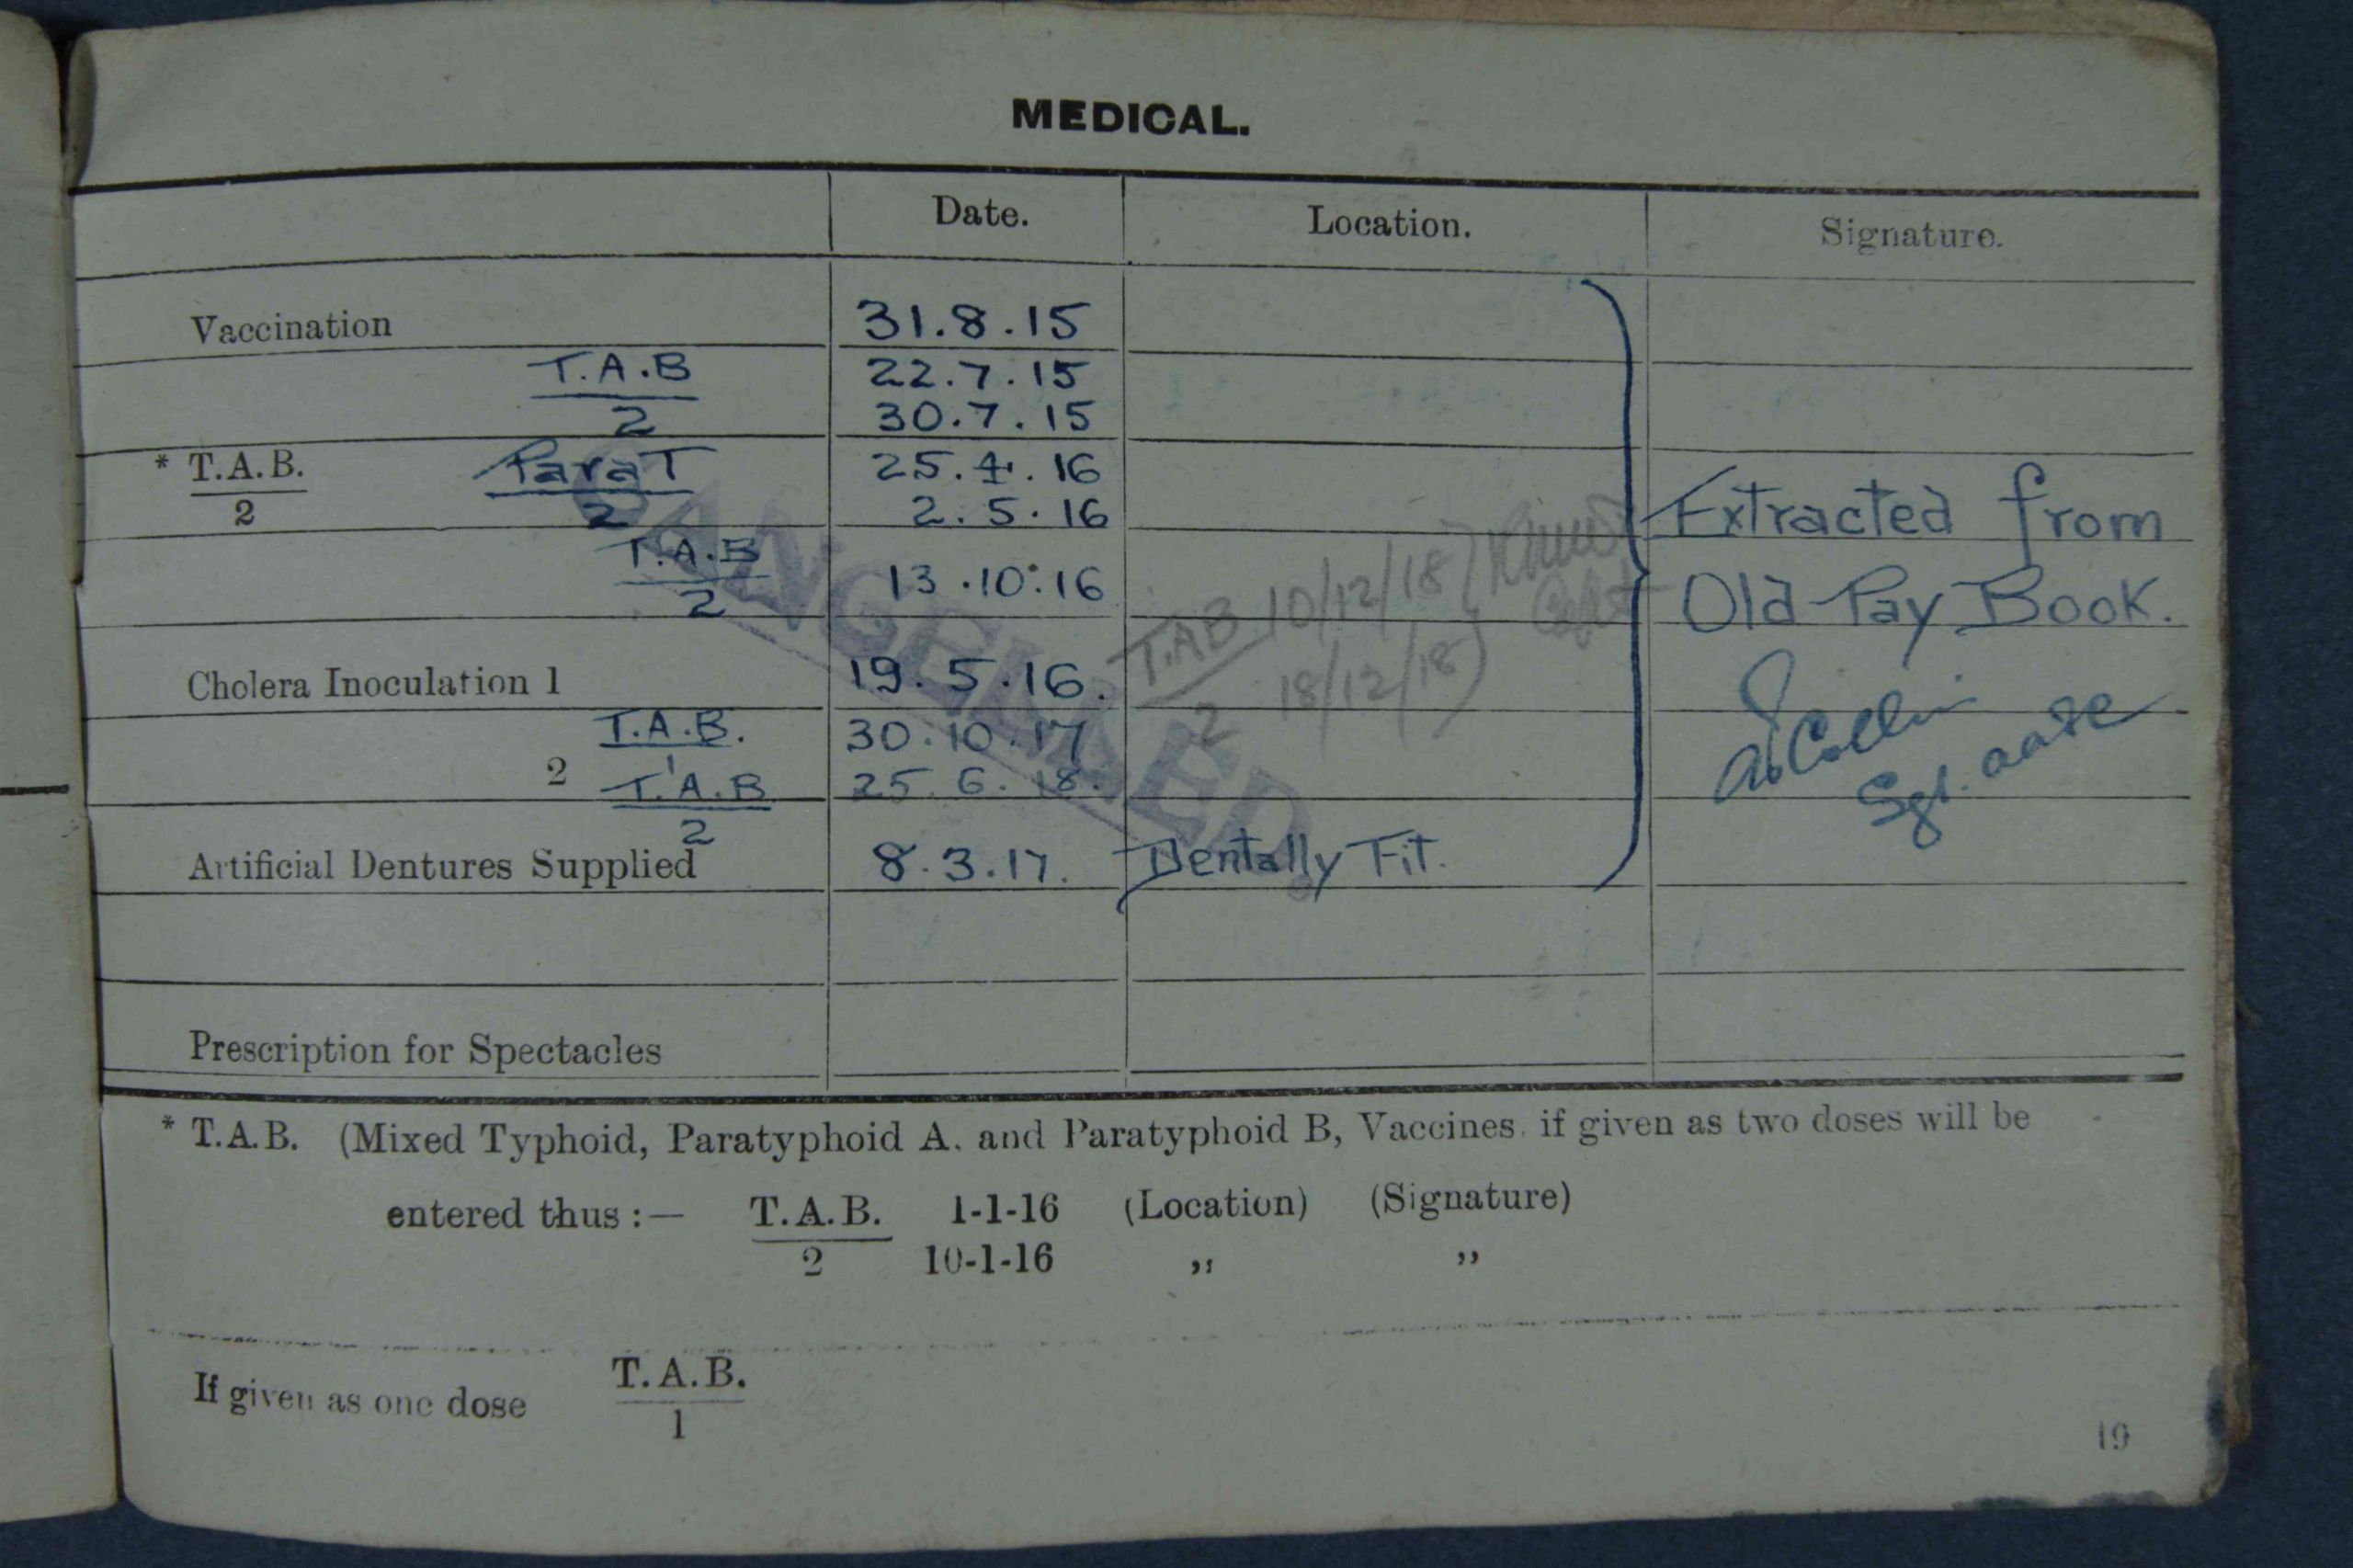 MEDICAL.
Date. Location. Signature.
Vaccination 31.8.15
T.A.B 22.7.15
2 30.7.15
* T.A.B. ParaT 25.4.16
2 2 2.5.16
Extracted from
T.A.B 13.10.16
2
T.AB 10/12/18
2 18/12/18
Capt
Old Pay Book.
Cholera Inoculation 1 19.5.16.
T.A.B. 30.10.17
1
2 T.A.B 25.6.18.
2
Sgt. aade
Artificial Dentures Supplied 8.3.17. Dentally Fit.
CANCELLED.
Prescription for Spectacles
* T.A.B. (Mixed Typhoid, Paratyphoid A. and Paratyphoid B, Vaccines, if given as two doses will be
entered thus :— T.A.B. 1-1-16 (Location) (Signature)
2 10-1-16 ,, ,,
If given as one dose T.A.B.
1
19